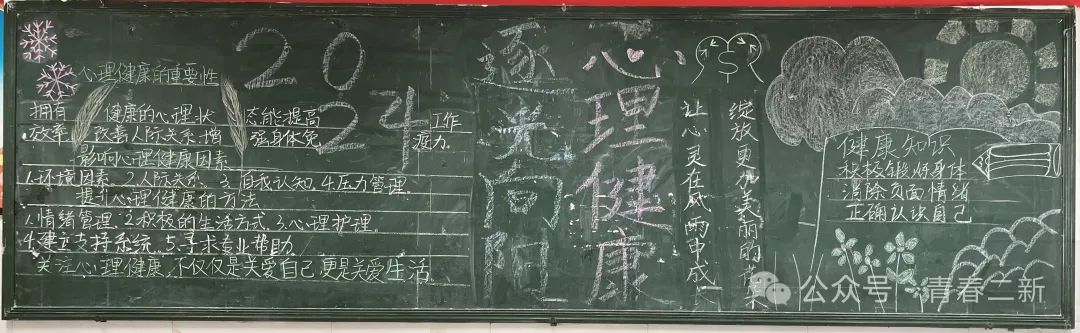 心理健康的重要性
2024
拥有 健康的心理状 态能提高 工作
效率 改善人际关系 增 强身体免 疫力.
影响心理健康因素
1.环境因素 2.人际关系 3.自我认知 4.压力管理.
提升心理健康的方法
1.情绪管理 2.积极的生活方式 3.心理护理.
4.建立支持系统 5.寻求专业帮助
关注心理健康,不仅仅是关爱自己,更是关爱生活
逐光向阳
心理健康
让心灵在风雨中成长
绽放更加美丽的
健康知识
积极锻炼好身体
消除负面情绪
正确认识自己
公众号·青春二新